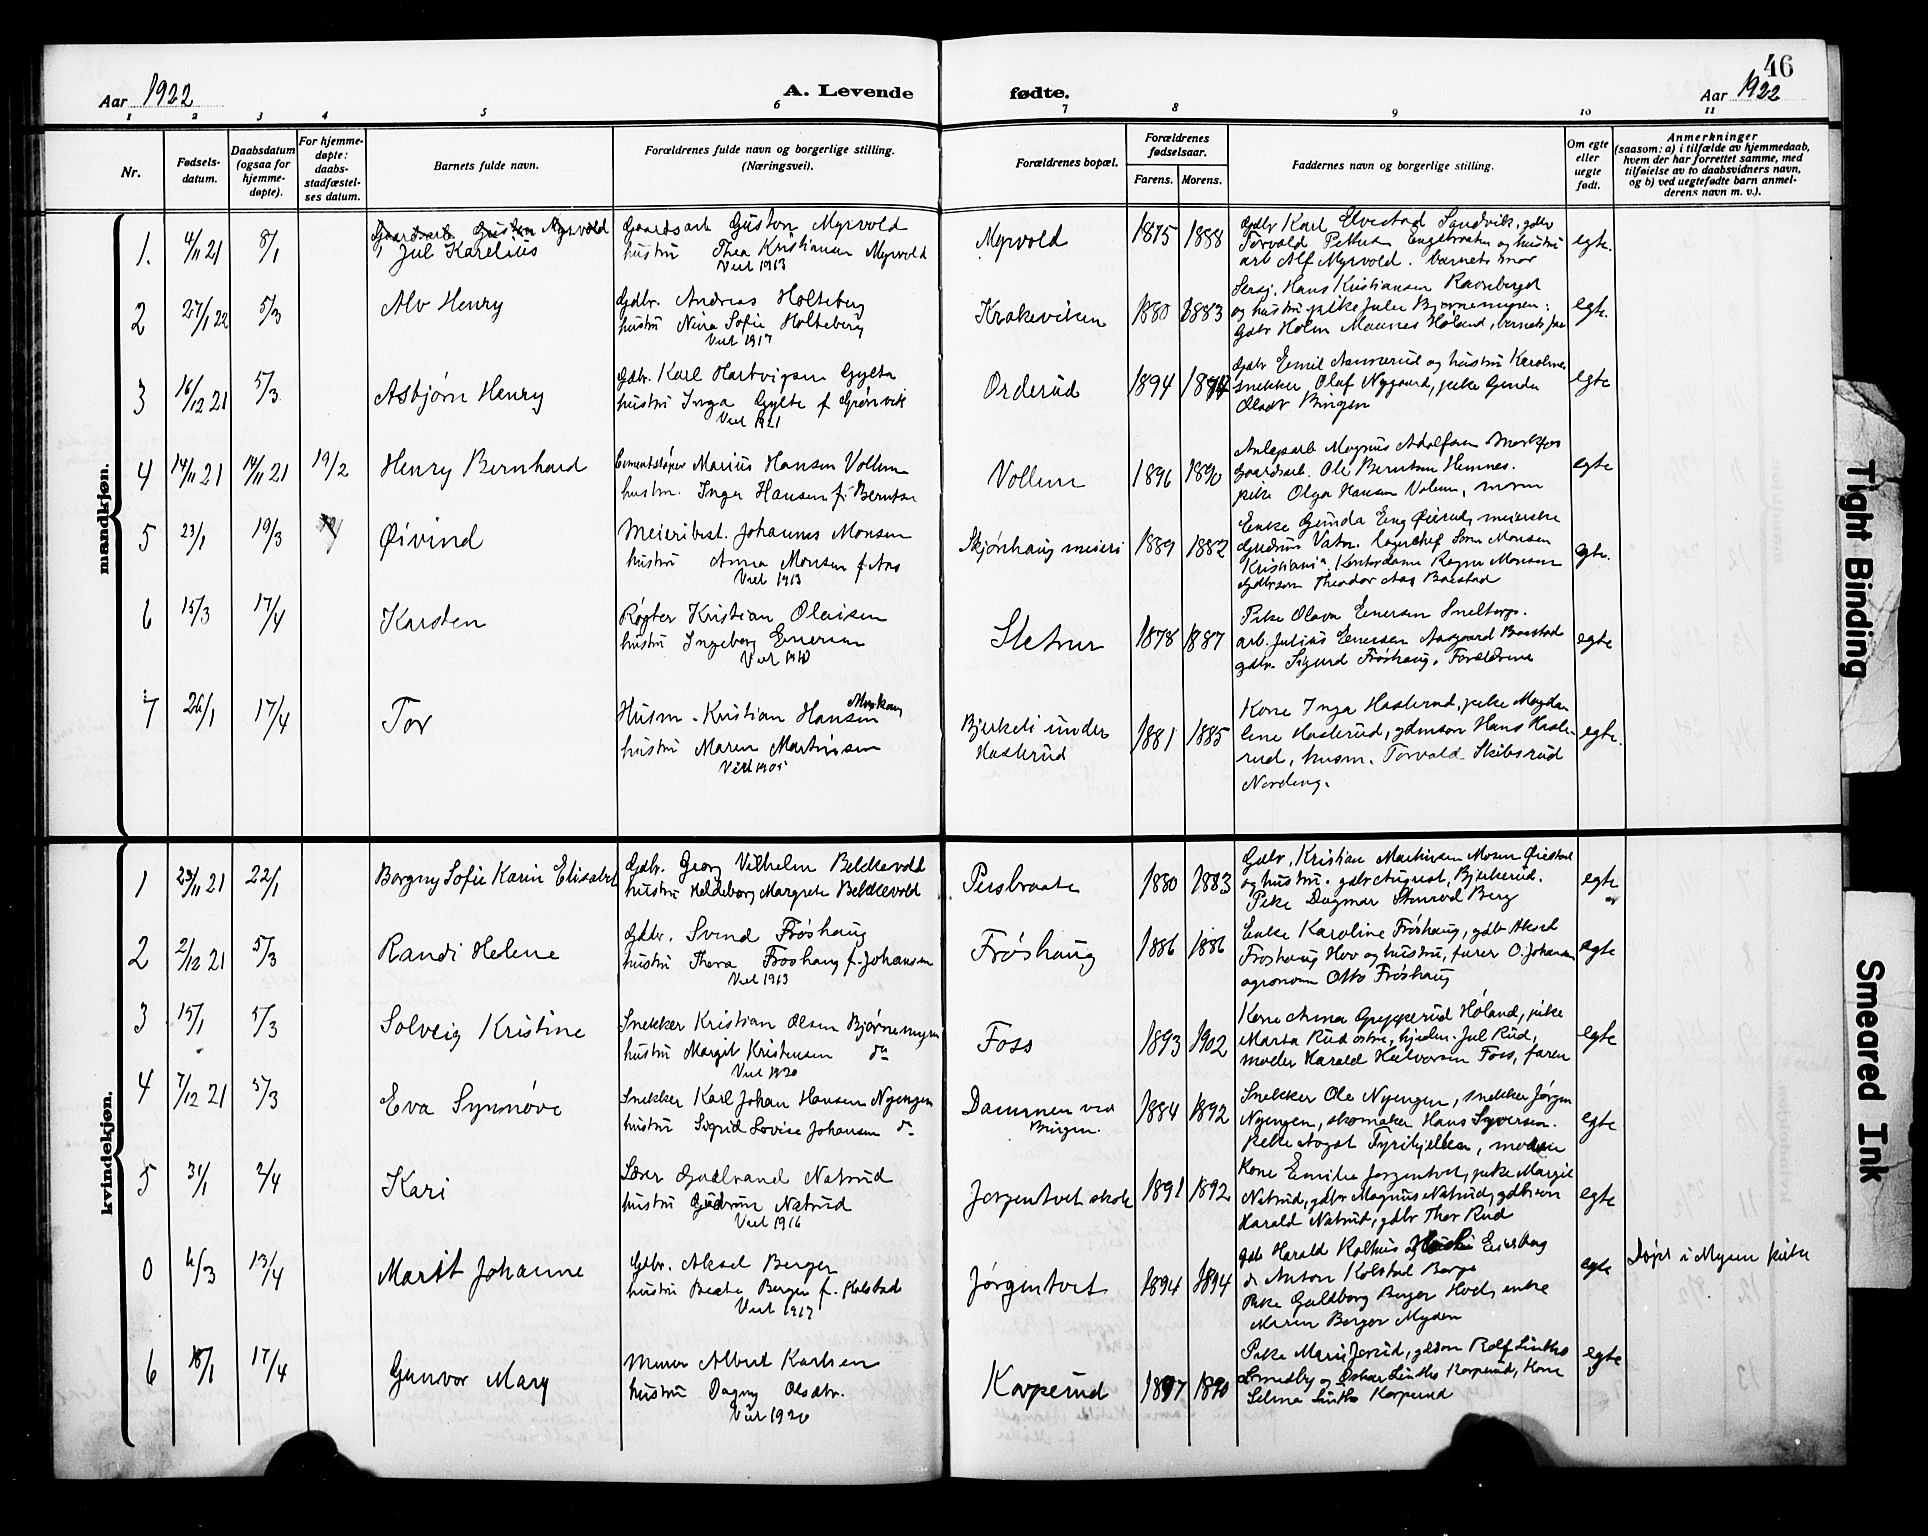 46
Aar 1922
A. Levende
fødte.
Aar 1922
1 2 3 4 5 6 7 8 9 10 11
Nr.
Fødsels-
datum.
Daabsdatum
(ogsaa for
hjemme-
døpte).
For hjemme-
døpte:
daabs-
stadfæstel-
ses datum.
Barnets fulde navn.
Forældrenes fulde navn og borgerlige stilling.
(Næringsvei).
Forældrenes bopæl.
Forældrenes
fødselsaar.
Farens. Morens.
Faddernes navn og borgerlige stilling.
Om egte
eller
uegte
født.
Anmerkninger
(saasom: a) i tilfælde av hjemmedaab,
hvem der har forrettet samme, med
tilføielse av to daabsvidners navn,
og b) ved uegtefødte barn anmel-
derens navn m. v.).
mandkjøn.
1. 4/11 21 8/1
Gaardsarb Gustav Myrvold
Jul Karelius
Gaardsarb Gustav Myrvold
hustru Thea Kristiansen Myrvold
Viet 1913
Myrvold 1875 1888
Gdbr Karl Elvestad Sandvik, gdbr
Torvald Pettersen Engebraaten og hustru
arb Alf Myrvold. barnets mor
egte.
2 27/1 22 5/3
Alv Henry
Gdbr. Andreas Holteberg
hustru Nina Sofie Holteberg
Viet 1917
Krokeviken 1880 1883
Sersj. Hans Kristiansen Ravneberget
og hustru, pike Julie Bjørnemyren:
Gdbr Holm Maanes Høland, barnets far
egte.
3 16/12 21 5/3
Asbjørn Henry
Gdbr. Karl Hartvigsen Gylte
hustru Inga Gylte f. Grønvik
Viet 1921
Orderud 1894 1894
Gdbr Emil Aamerud og hustru Karoline
snekker Olaf Nygaard, pike Gunda
Olsdtr Bingen
egte
4 14/11 21 14/11 21 19/2
Henry Bernhard
Cementstøper Marius Hansen Vollum
hustru. Inga Hansen f. Berntsen
Vollum 1896 1890
Anlegsarb Magnus Adolfsen Mork
Gaardsarb. Ole Berntsen Hemnes.
pike Olga Hansen Vollum, moren
egte
5 23/1 19/3
Øivind
Meieribest. Johannes Monsen
hustru Anna Monsen f. Aas
Viet 1913
Skjønhaug meieri 1889 1882
Enke Gunda Eng Øierud, meierske
Gudrun Vatn. lagerchef Monsen
Kristiania Kontordame Ragna Monsen
Gdbrsøn Theodor Aas Baastad
egte.
6 15/3 17/4
Karsten
Røgter Kristian Olaisen
hustru Ingeborg Enersen
Viet 1910
Sletner 1878 1887
Pike Olava Enersen Sneltorp.
arb. Julius Enersen Aasgaard Baastad
gdbr. Sigurd Frøshaug. Forældrene
egte
7 26/1 17/4
Tor
Husm. Kristian Hansen
hustru Maren Martinsen
Viet 1905
Bjerkeli under
Haslerud
1881 1885
Kone Inga Haslerud, pike Magda-
lene Haslerud, gdmson Hans Hasle-
rud, husm. Torvald Skibsrud
Nordeng.
egte.
kvindekjøn.
1 23/11 21 22/1
Borgny Sofie Karin Elisabet
Gdbr. Georg Vilhelm Bekkevold
hustru Heldeborg Margrete Bekkevold
Pusbraate 1880 1883
Gdbr. Kristian Martinsen Mosen Øiestad
og hustru. gdbr August Bjerkerud.
Pike Dagmar Stenrød Berg
egte
2 2/12 21 5/3
Randi Helene
Gdbr. Svend Frøshaug
hustru Thora Frøshaug f. Johansen
Viet 1913
Frøshaug 1886 1886
Enke Karoline Frøshaug, gdbr Aksel
Frøshaug Hov og hustru, furer O. Johansen
agronom Otto Frøshaug
egte
3 15/1 5/3
Solveig Kristine
Snekker Kristian Olsen Bjørnemyren
hustru Margit Kristensen do
Viet 1920
Foss 1893 1902
Kone Anna Grepperud Høland, pike
Marta Rud østre, hjulm. Jul Rud,
møller Harald Halvorsen Foss, faren
egte
4 7/12 21 5/3
Eva Synnøve
Snekker Karl Johan Hansen Nyengen
hustru Sigrid Lovise Johansen do
Dammen ved
Bingen.
1884 1892
Snekker Ole Nyengen, snekker Jørgen
Nyengen, skomaker Hans Syversen.
Pike Aagot Fyrihjellen, moderen
egte
5 31/1 2/4
Kari
Lærer Gudbrand Natrud
hustru Gudrun Natrud
Viet 1916
Jørgentvet skole 1891 1892
Kone Emilie Jørgentvet, pike Margit
Natrud, gdbr Magnus Natrud, gdbrsøn
Harald Natrud, gdbr Thor Rud
egte
0 6/3 13/4
Marit Johanne
Gdbr. Aksel Berger
hustru Beate Berger f. Kolstad
Viet 1917
Jørgentvet 1894 1894
Gdb Harald Kolhus og Eidsberg
do Anton Kolstad Borge
Pike Guldborg Berger Hov, enke
Maren Berger Mysen
egte
Døpt i Mysen kirke
6 18/1 17/4
Gunvor Mary
Murer Albert Karlsen
hustru Dagny Olsdtr.
Viet 1920
Korperud 1897 1890
Pike Marie Jerud, gdson Rolf Lintho
Smedby og Oskar Lintho Korperud, Kone
Selma Lintho Korperud
egte
Tight Binding
Smeared Ink